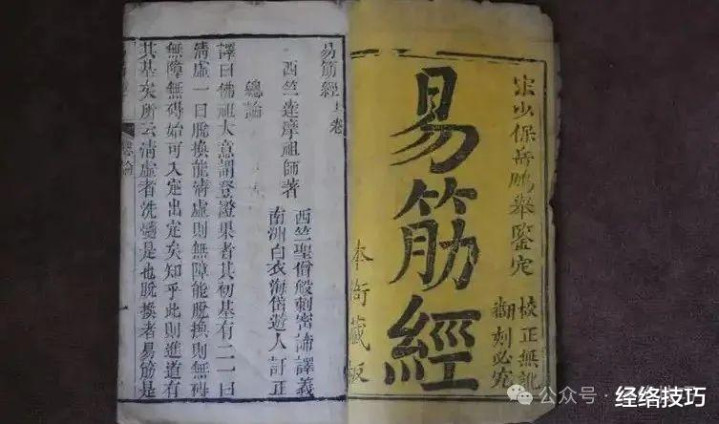 宋少保岳鵬舉鑒定
易筋經
校正無訛
翻刻必究
本衙藏板
易筋經上卷
西竺達摩祖師著
西竺聖僧般剌密諦譯義
南洲白衣海岱遊人訂正
總論
譯曰佛祖大意謂登證果者其初基有二一曰
清虛一曰脫換能清虛則無障能脫換則無碍
無障無碍始可入定出定矣知乎此則進道有
其基矣所云清虛者洗髓是也脫換者易筋是
總論
公众号
经络技巧